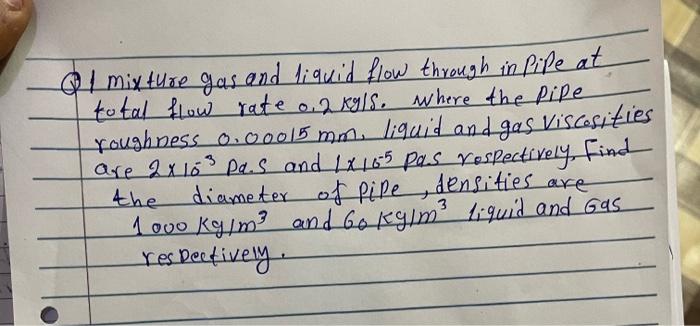 Q1 mixture gas and liquid flow through in pipe at
total flow rate 0.2 kg/s. where the pipe
roughness 0.00015 mm. liquid and gas viscosities
are 2x10⁻³ pa.s and 1x10⁻⁵ pas respectively. Find
the diameter of pipe, densities are
1000 kg/m³ and 60 kg/m³ liquid and Gas
respectively.